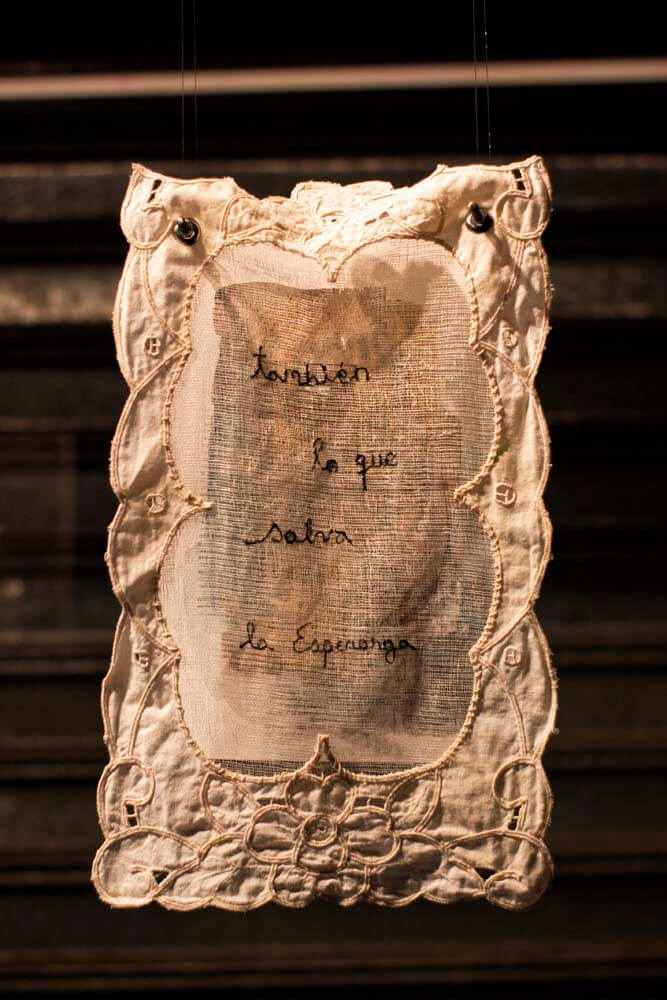 también
lo que
salva
la Esperanza